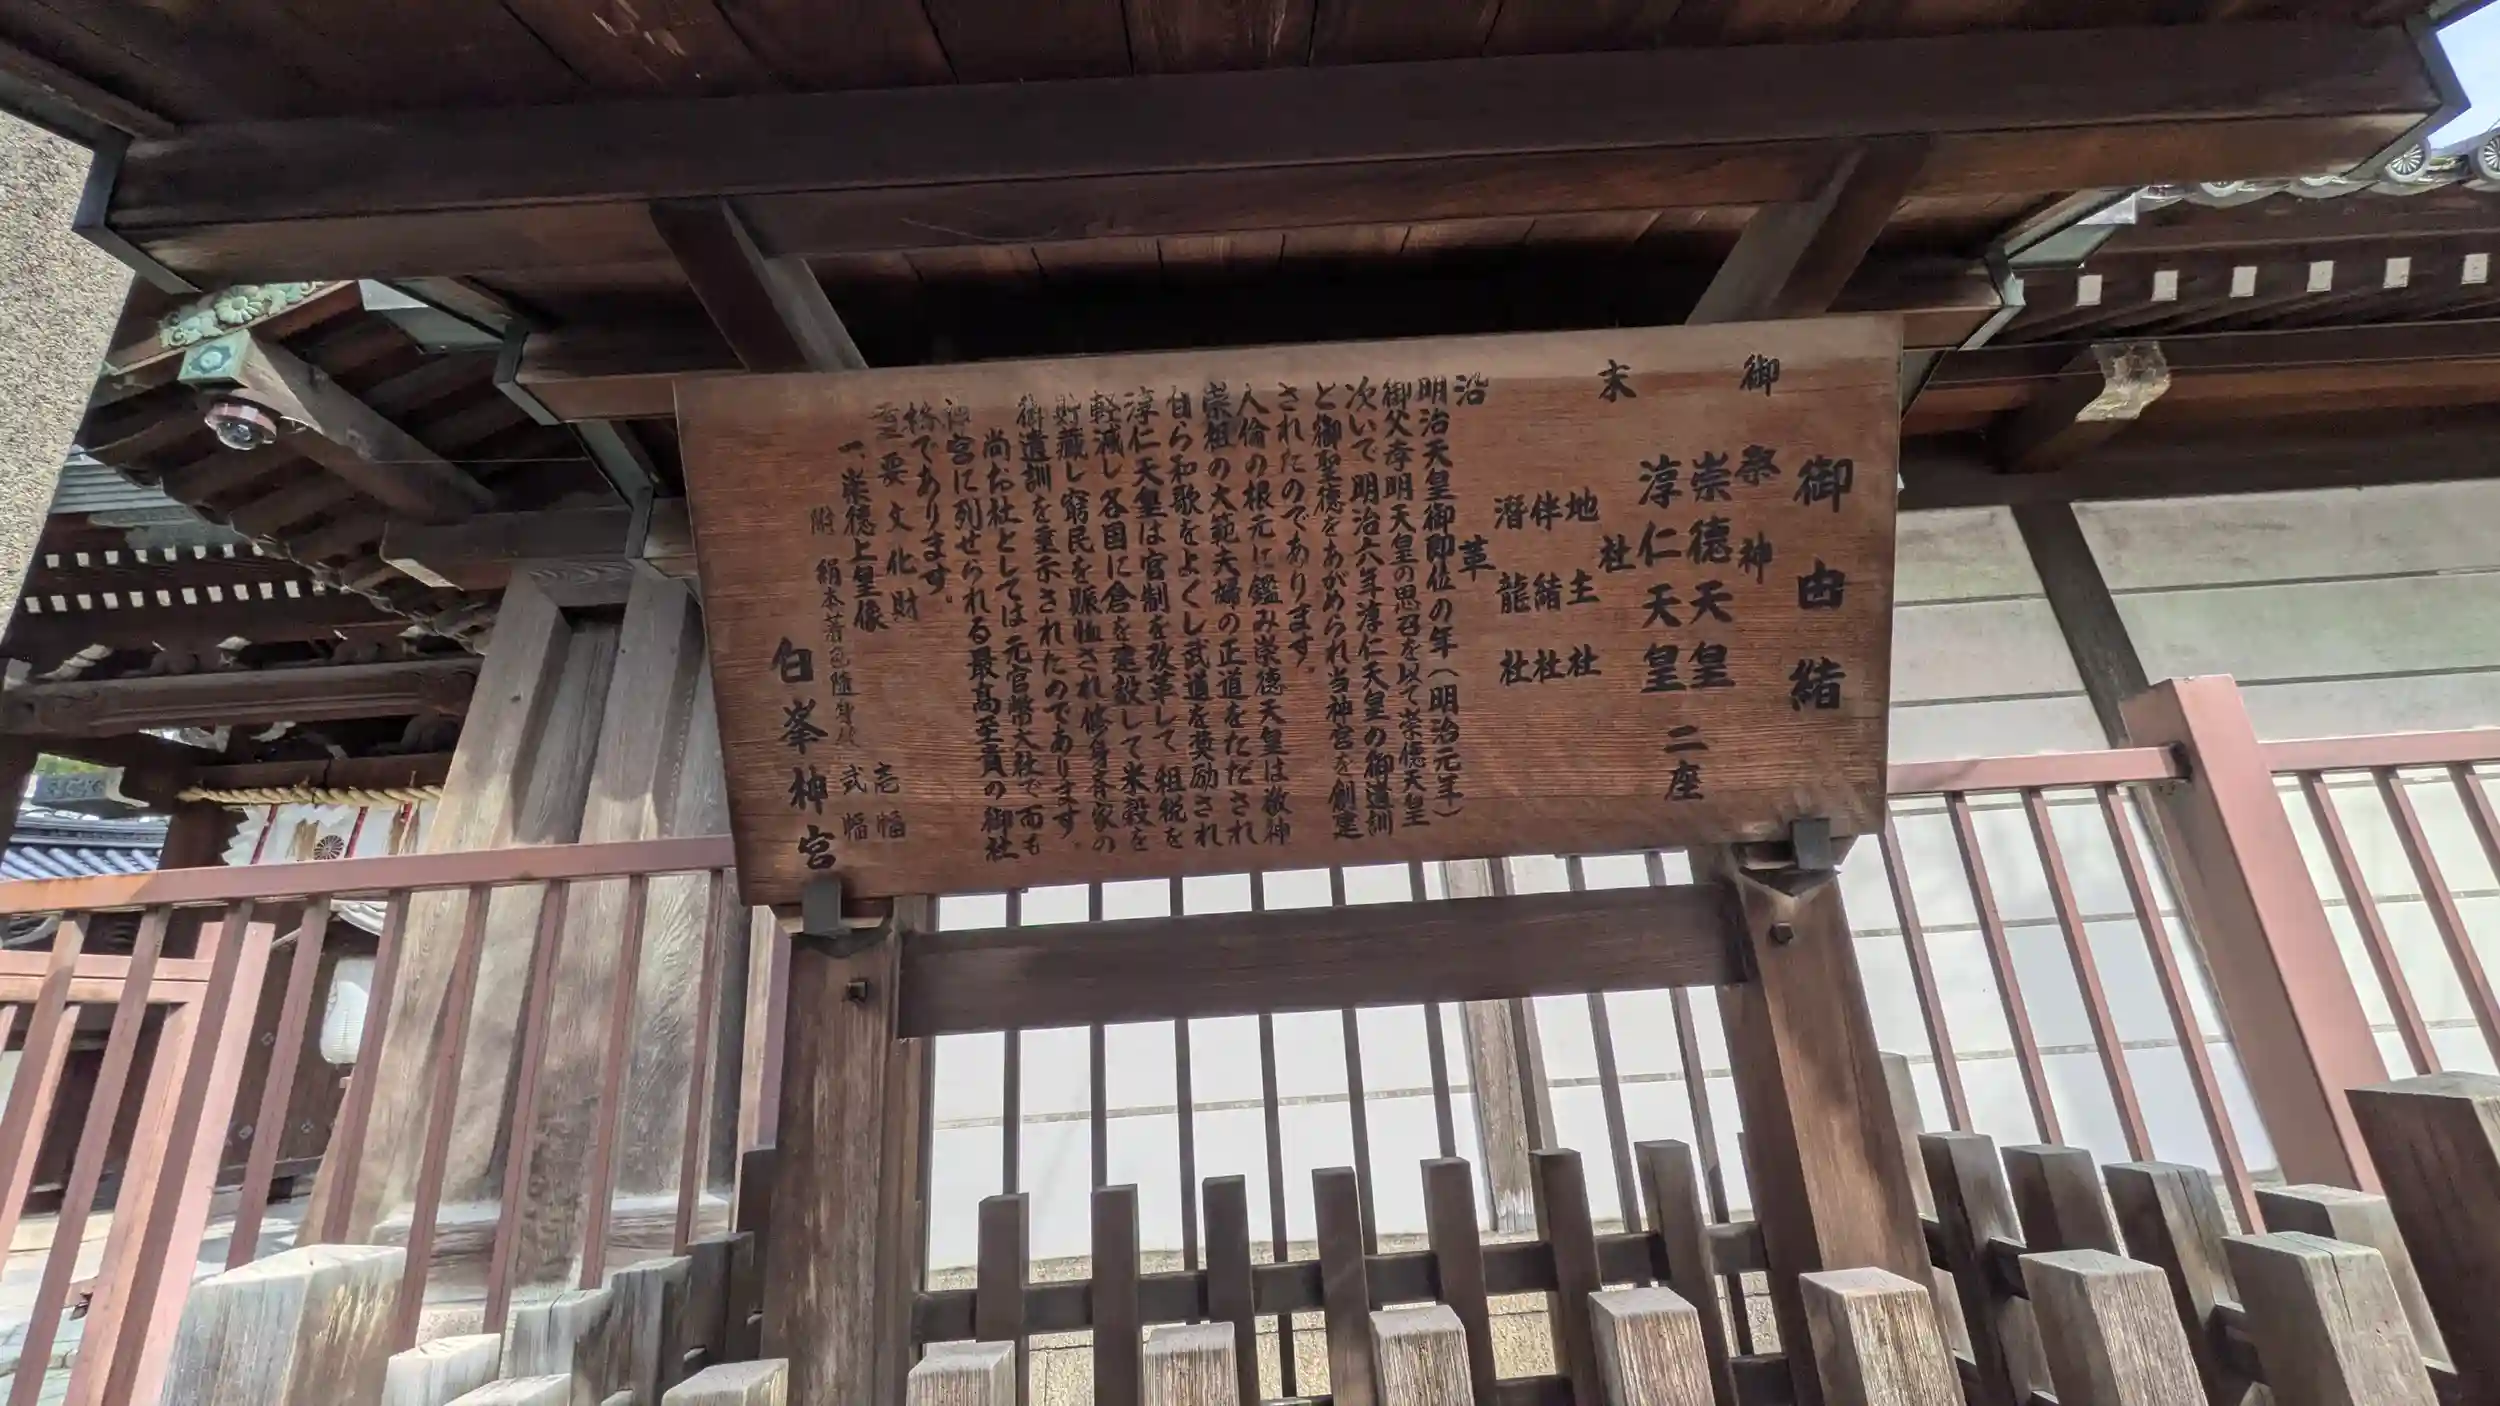 御由緒
御祭神
崇德天皇
淳仁天皇 二座
末社
地主社
伴緒社
潛龍社
沿革
明治天皇御即位の年(明治元年)
御父孝明天皇の思召を以て崇德天皇
次いで明治六年淳仁天皇の御遺訓
と御聖德をあがめられ当神宮を創建
されたのであります。
人倫の根元に鑑み崇德天皇は敬神
崇祖の大範夫婦の正道をただされ
甘ら和歌をよくし武道を奨励され
淳仁天皇は官制を改革して租税を
軽減し各国に倉を建設して米穀を
貯蔵し窮民を賑恤され修身斉家の
御遺訓を垂示されたのであります。
尚お社としては元官幣大社で而も
神宮に列せられる最高至貴の御社
格であります。
重要文化財
一、崇德上皇像 壱幅
附 絹本著色隨身 弐幅
白峯神宮